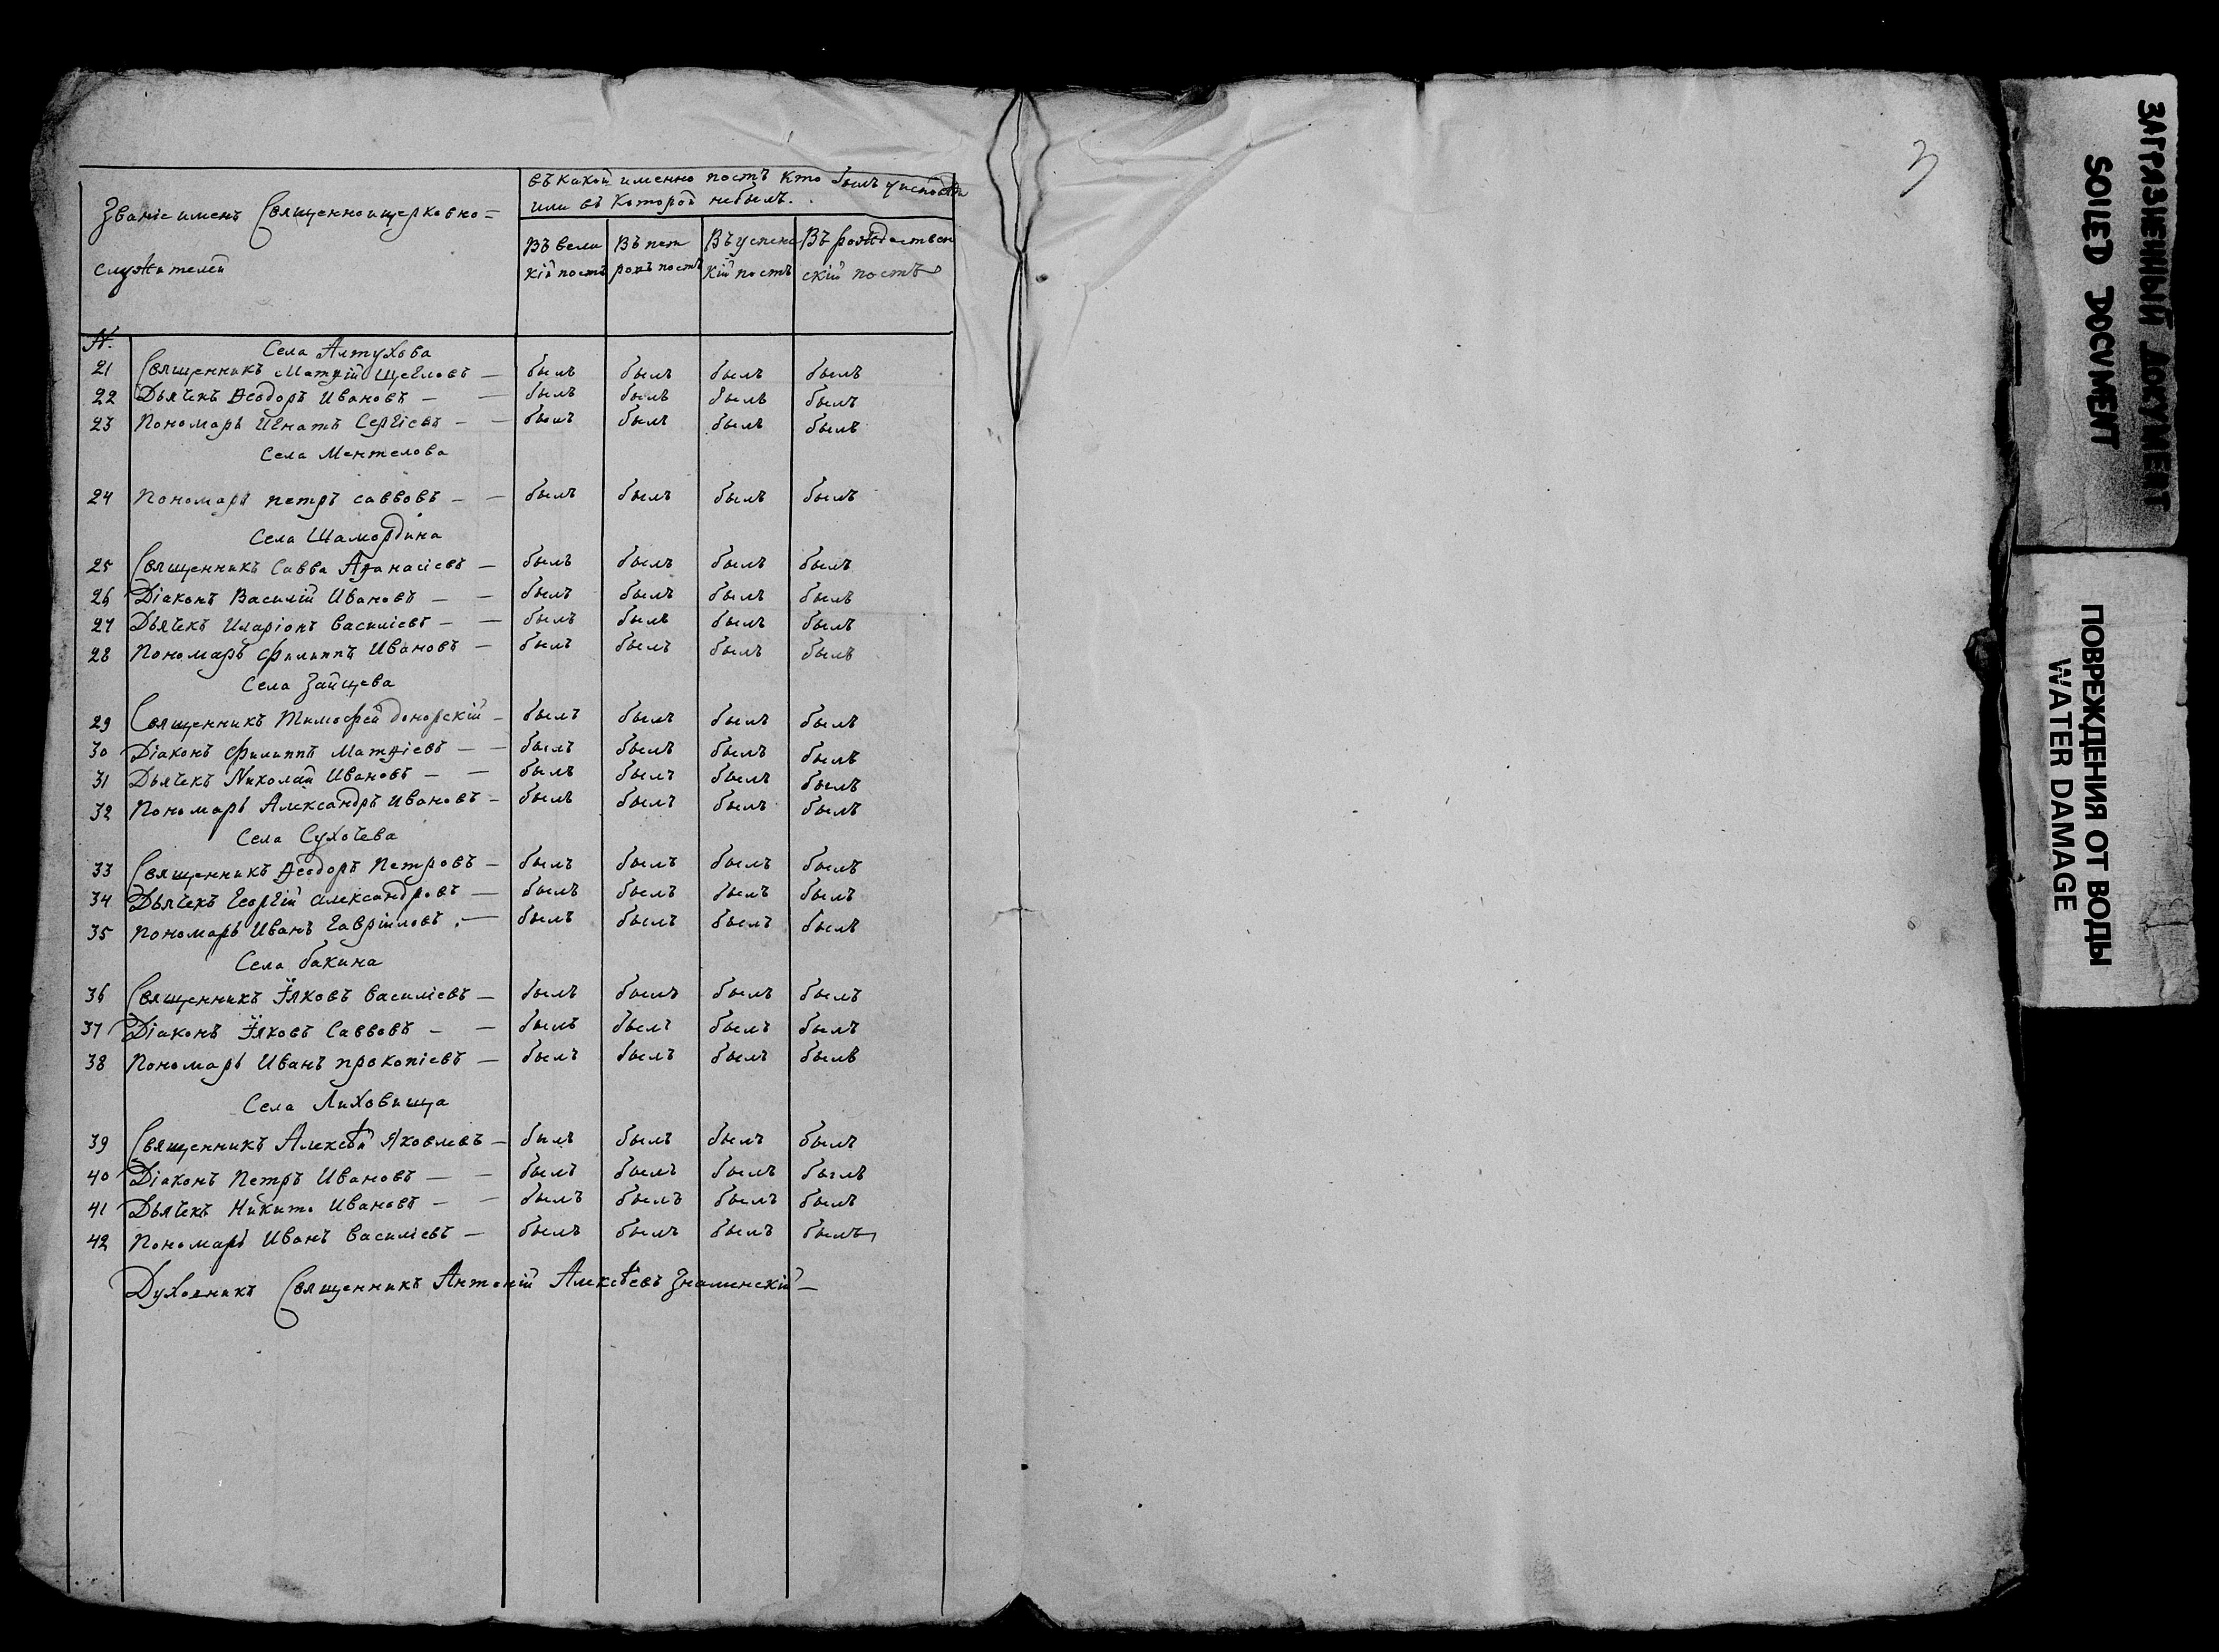 Званіе именъ Священноицерковно=
служителей
въ какой именно постъ кто былъ уисповѣди
или въ которой небылъ.
Въ вели
кій постъ
Въ пет
ровъ постъ
Въ успенс
кій постъ
Въ рождествен
скій постъ
№.
Села Алтухова
21 Священникъ Матѳій Щегловъ — былъ былъ былъ былъ
22 Дьячекъ Ѳеодоръ Ивановъ — — былъ былъ былъ былъ
23 Пономарь Игнатъ Сергіевъ — — былъ былъ былъ былъ
Села Ментелова
24 Пономарь петръ саввовъ — — былъ былъ былъ былъ
Села Шамордина
25 Священникъ Савва Аѳанасіевъ — былъ былъ былъ былъ
26 Діаконъ Василій Ивановъ — — былъ былъ былъ былъ
27 Дьячекъ Иларіонъ Василіевъ — — былъ былъ былъ былъ
28 Пономарь Филиппъ Ивановъ — былъ былъ былъ былъ
Села Зайцева
29 Священникъ Тимофей — былъ былъ былъ былъ
30 Діаконъ Филиппъ Матѳіевъ — — былъ былъ былъ былъ
31 Дьячекъ Николай Ивановъ — — былъ былъ былъ былъ
32 Пономарь Александръ Ивановъ — былъ былъ былъ былъ
Села Сухочева
33 Священникъ Ѳеодоръ Петровъ — былъ былъ былъ былъ
34 Дьячекъ Георгій Александровъ — былъ былъ былъ былъ
35 Пономарь Иванъ Гавріиловъ — былъ былъ былъ былъ
Села бакина
36 Священникъ Іяковъ Василіевъ — былъ былъ былъ былъ
37 Діаконъ Іяковъ Саввовъ — — былъ былъ былъ былъ
38 Пономарь Иванъ прокопіевъ — былъ былъ былъ былъ
Села Лиховища
39 Священникъ Алексѣй Яковлевъ — былъ былъ былъ былъ
40 Діаконъ Петръ Ивановъ — — былъ былъ былъ былъ
41 Дьячекъ Никита Ивановъ — — былъ былъ былъ былъ
42 Пономарь Иванъ Василіевъ — былъ былъ былъ былъ
Духовникъ Священникъ Антоній Алексѣевъ Знаменскій —
3
ЗАГРЯЗНЕННЫЙ ДОКУМЕНТ
SOILED DOCUMENT
ПОВРЕЖДЕНИЯ ОТ ВОДЫ
WATER DAMAGE